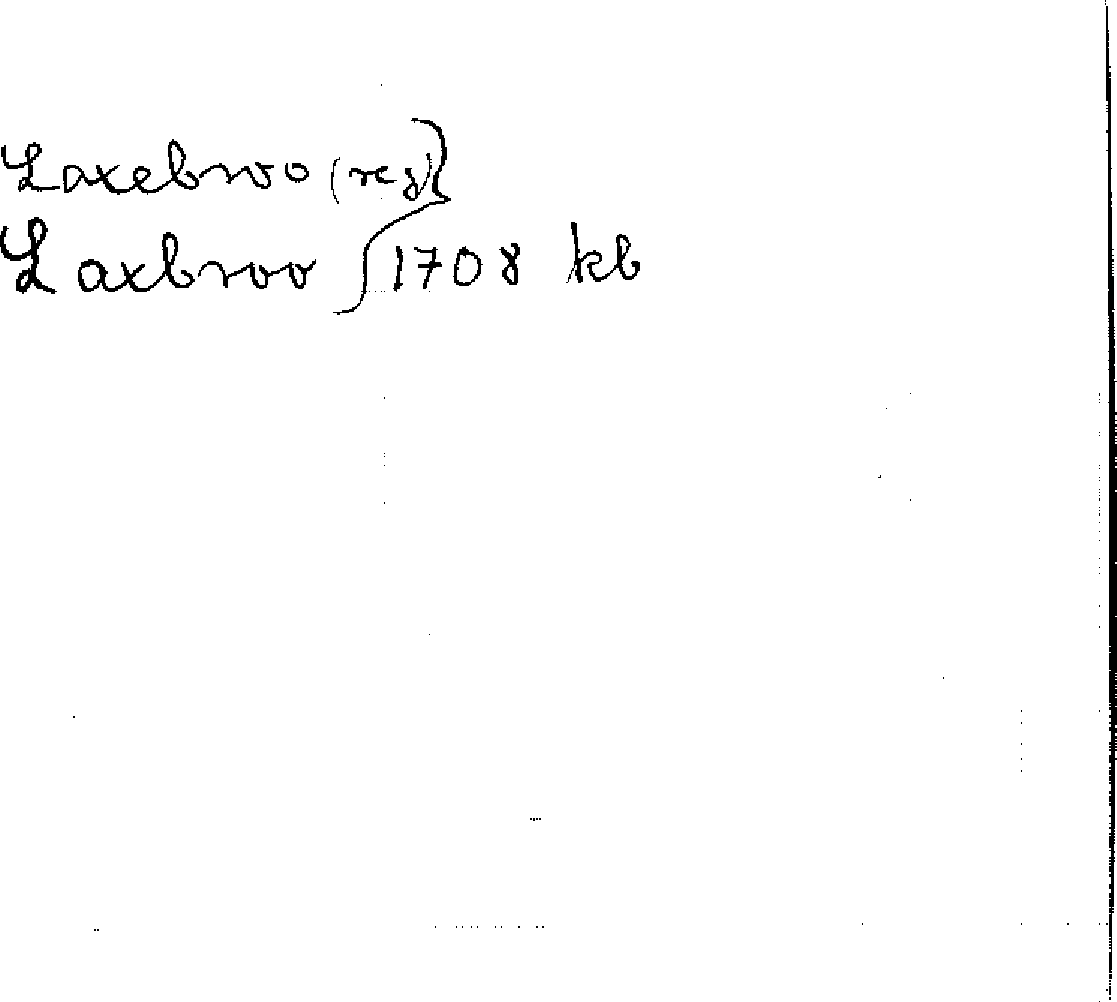 Laxebroo (reg)}
Laxbroo } 1708 kb